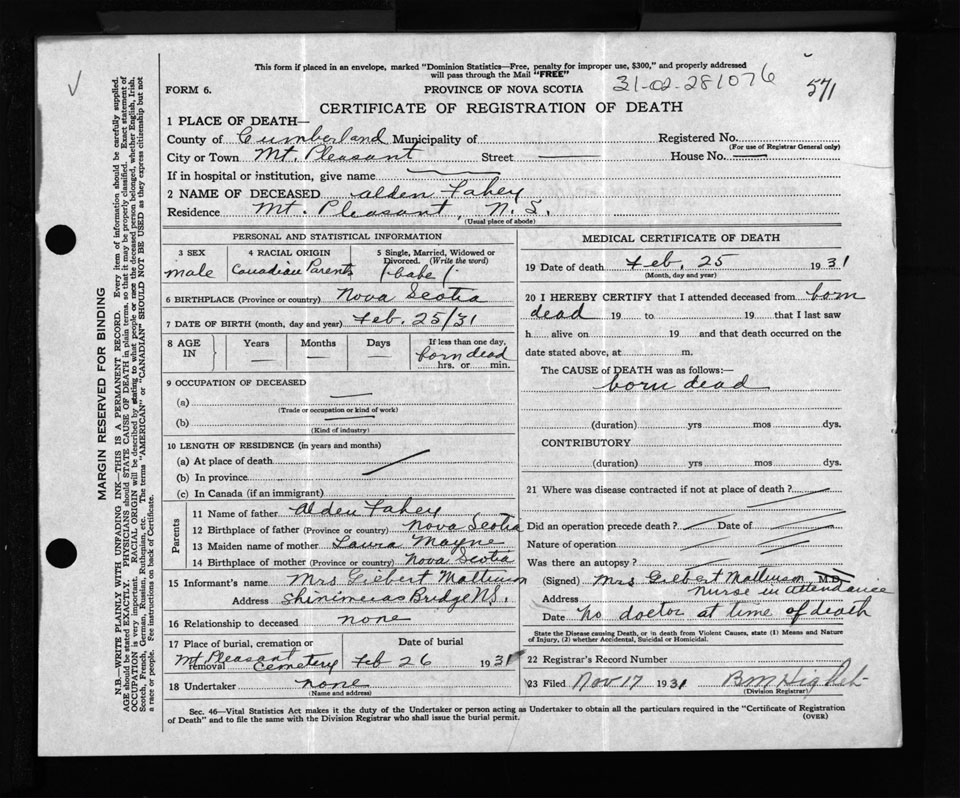 This form if placed in an envelope, marked "Dominion Statistics—Free, penalty for improper use, $300," and properly addressed
will pass through the Mail "FREE"
FORM 6. PROVINCE OF NOVA SCOTIA 31-02-281076 571
CERTIFICATE OF REGISTRATION OF DEATH
1 PLACE OF DEATH—
County of Cumberland Municipality of Registered No.
(For use of Registrar General only)
City or Town Mt. Pleasant Street — House No. —
If in hospital or institution, give name
2 NAME OF DECEASED Alden Fahey
Residence Mt. Pleasant, N.S.
(Usual place of abode)
PERSONAL AND STATISTICAL INFORMATION
3 SEX 4 RACIAL ORIGIN 5 Single, Married, Widowed or
Divorced. (Write the word)
male Canadian Parents (babe)
6 BIRTHPLACE (Province or country) Nova Scotia
7 DATE OF BIRTH (month, day and year) Feb. 25/31
8 AGE IN Years Months Days If less than one day,
— — — born dead
hrs. or min.
9 OCCUPATION OF DECEASED
(a) —
(Trade or occupation or kind of work)
(b) —
(Kind of industry)
10 LENGTH OF RESIDENCE (in years and months)
(a) At place of death
(b) In province
(c) In Canada (if an immigrant)
Parents
11 Name of father Alden Fahey
12 Birthplace of father (Province or country) Nova Scotia
13 Maiden name of mother Laura Mayne
14 Birthplace of mother (Province or country) Nova Scotia
15 Informant's name Mrs Gilbert Mattinson
Address Shinimicas Bridge NS.
16 Relationship to deceased none
17 Place of burial, cremation or removal Date of burial
Mt Pleasant Cemetery Feb 26 1931
18 Undertaker none
(Name and address)
MEDICAL CERTIFICATE OF DEATH
19 Date of death Feb. 25 1931
(Month, day and year)
20 I HEREBY CERTIFY that I attended deceased from born
dead 19 to 19 that I last saw
h alive on 19 and that death occurred on the
date stated above, at m.
The CAUSE of DEATH was as follows:—
born dead
(duration) yrs mos dys.
CONTRIBUTORY
(duration) yrs mos dys.
21 Where was disease contracted if not at place of death?
Did an operation precede death? Date of
Nature of operation
Was there an autopsy?
(Signed) Mrs Gilbert Mattinson M.D.
Address Nurse in attendance
Date No doctor at time of death
State the Disease causing Death, or in death from Violent Causes, state (1) Means and Nature
of Injury, (2) whether Accidental, Suicidal or Homicidal.
22 Registrar's Record Number
23 Filed Nov 17 1931
(Division Registrar)
Sec. 46—Vital Statistics Act makes it the duty of the Undertaker or person acting as Undertaker to obtain all the particulars required in the "Certificate of Registration
of Death" and to file the same with the Division Registrar who shall issue the burial permit. (OVER)
MARGIN RESERVED FOR BINDING
N.B.—WRITE PLAINLY WITH UNFADING INK—THIS IS A PERMANENT RECORD. Every item of information should be carefully supplied.
AGE should be stated EXACTLY. PHYSICIANS should STATE CAUSE OF DEATH in plain terms, so that it may be properly classified. Exact statement of
OCCUPATION is very important. RACIAL ORIGIN will be described by stating to what people or race the deceased person belonged, whether English, Irish,
Scotch, French, German, Russian, Ruthenian, etc. The terms "AMERICAN" or "CANADIAN" SHOULD NOT BE USED as they express citizenship but not
a race or people. See instructions on back of Certificate.